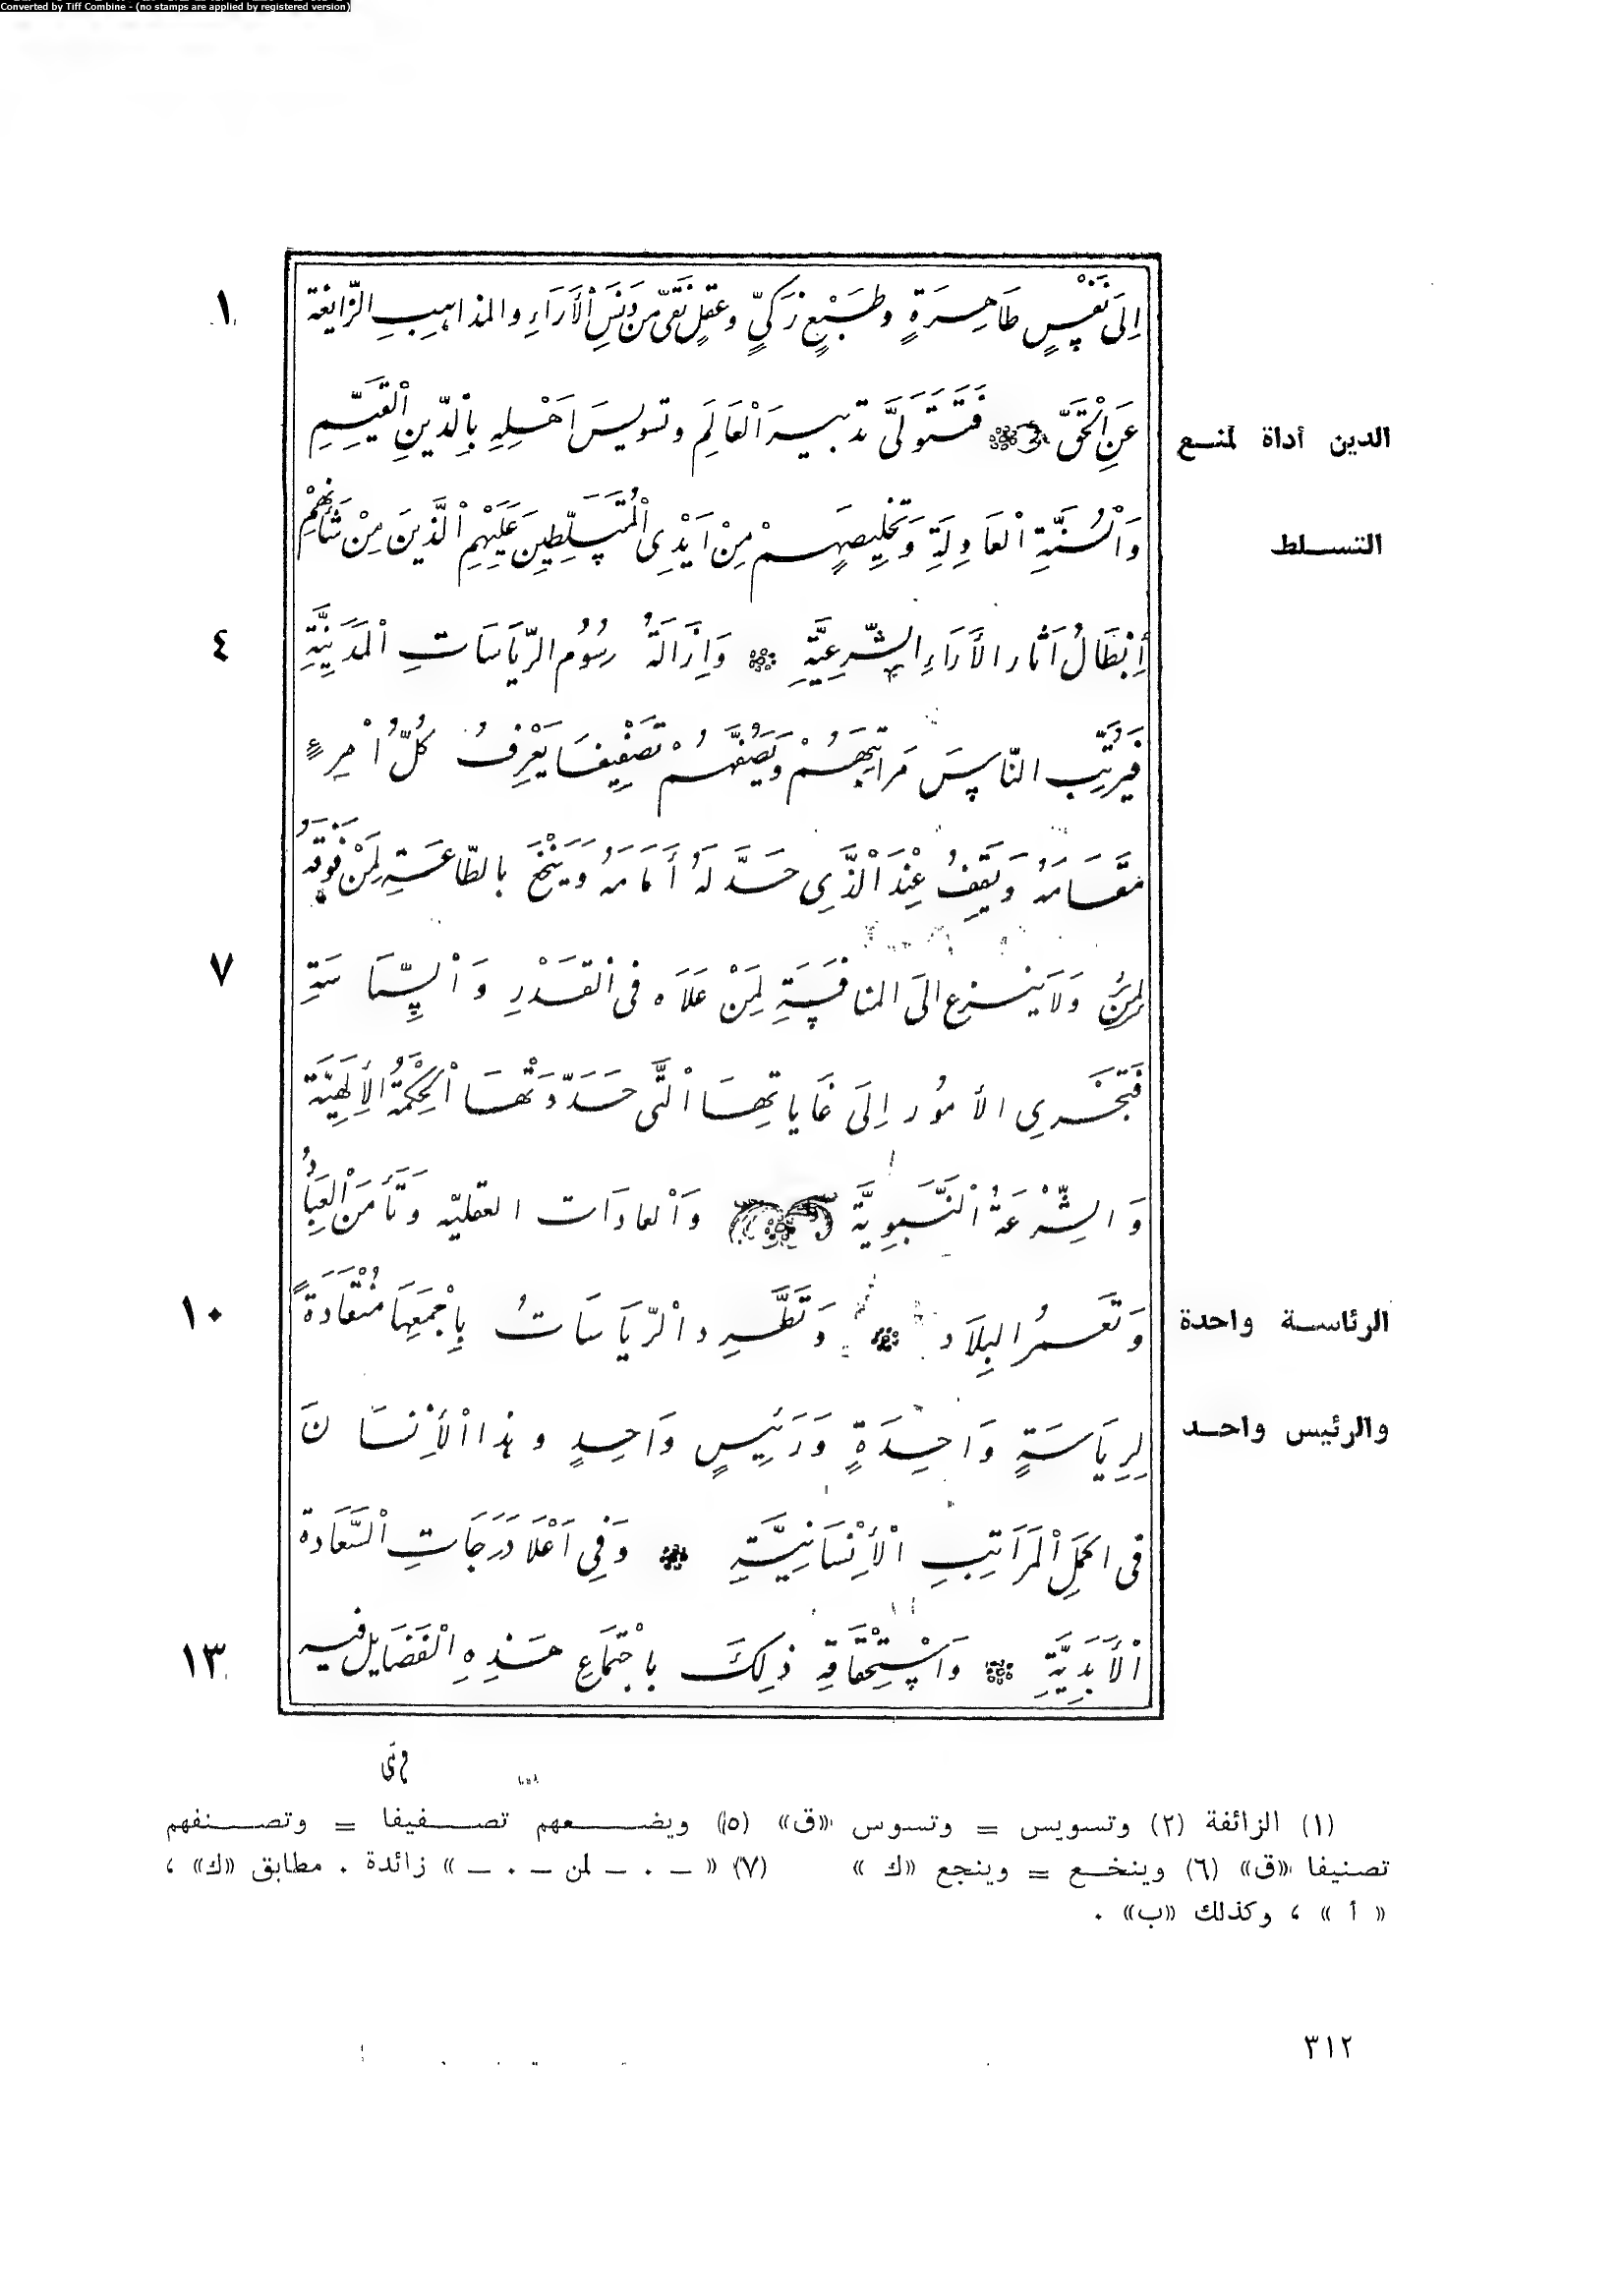 Converted by Tiff Combine - (no stamps are applied by registered version)
١ اِلَى نَفْسٍ طَاهِرَةٍ وطَبْعٍ زَكِيٍّ وعقلٍ نَقىّ مِن دَنَسِ الْأَرَاءِ والمذاهِبِ الزّايغة
عَنِ الْحَقَّ فَتَتَوَلَىَّ تدبيرَ الْعَالَمِ وتسويسَ اَهْلِهِ بِالْدّينِ الْقَيِّمِ
الدين أداة لمنع
وَالْسُنَّةِ الْعَادِلَةِ وَتَخْلِيصِهِمْ مِنْ اَيْدِى الْمُتَسَلِّطِينَ عَلَيْهِمِ الْذَّينَ مِنْ شَأْنِهِمْ
التسلط
٤ أِبْطَالُ اَثار الأَرَاءِ الشّرِعيَّةِ وَاِزَالَةُ رسُوُم الرّيَاسَاتِ الْمَدَنِيَّةِ
فَيُرَتِّب النّاسَ مَرَاتِبَهُمْ وَيَصُفَّهُمْ تَصْفِيفَا يَعْرِفُ كُلُّ اُمْرِءٍ
مقَامَهُ وَيَقِفُ عِنْدَ الْذَّي حَدَّ لَهُ أَمَامَهُ وَيَنْخَعَ بالطّاعَةِ لِمَنْ فَوقَهُ
٧ ولَا ينزع الَى المنافَسَةِ لِمَنْ عَلَاه فى القَدْرِ وَالْسِّيَاسَةِ
فَتَجْرِي الأموُر اِلَى غَاياتِهَا الْتَّى حَدَّدَتْهَا الْحِكْمَةُ الأِلَهِيَّة
وَالشِّرْعَةُ الْنَّبَوِيَّة وَالعادَات العقليّه وَتَأمَنَ الْعِبَادُ
١٠ وَتَعمرُ البِلَاد وَتَطَّرِد الْرّيَاسَاتُ بِاِجْمَعِهَا مُنْقَادَةً
الرئاسة واحدة
لِرِيَاسَةٍ وَاحِدَةٍ وَرَئِيسٍ وَاحِدٍ وهذا الْأِنْسَانَ
والرئيس واحد
فى اكمَلِ الْمَرَاتِبِ الْأِنْسَانِيَّةِ وَفِي اَعْلَا دَرَجَاتِ الْسَّعَادة
١٣ الْأَبَدِيَّةِ وَاسْتِحْقَاقِهِ ذلِكَ باجْتِمَاعِ هَذِهِ الْفَضَايل فيه
(١) الزائفة (٢) وتسويس = وتسوس «ق» (٥) ويضعهم تصفيفا = وتصنفهم
تصنيفا «ق» (٦) وينخع = وينجع «ك» (٧) « - ٠ - لمن - ٠ - » زائدة . مطابق «ك» ،
« أ » ، وكذلك «ب» .
٣١٢